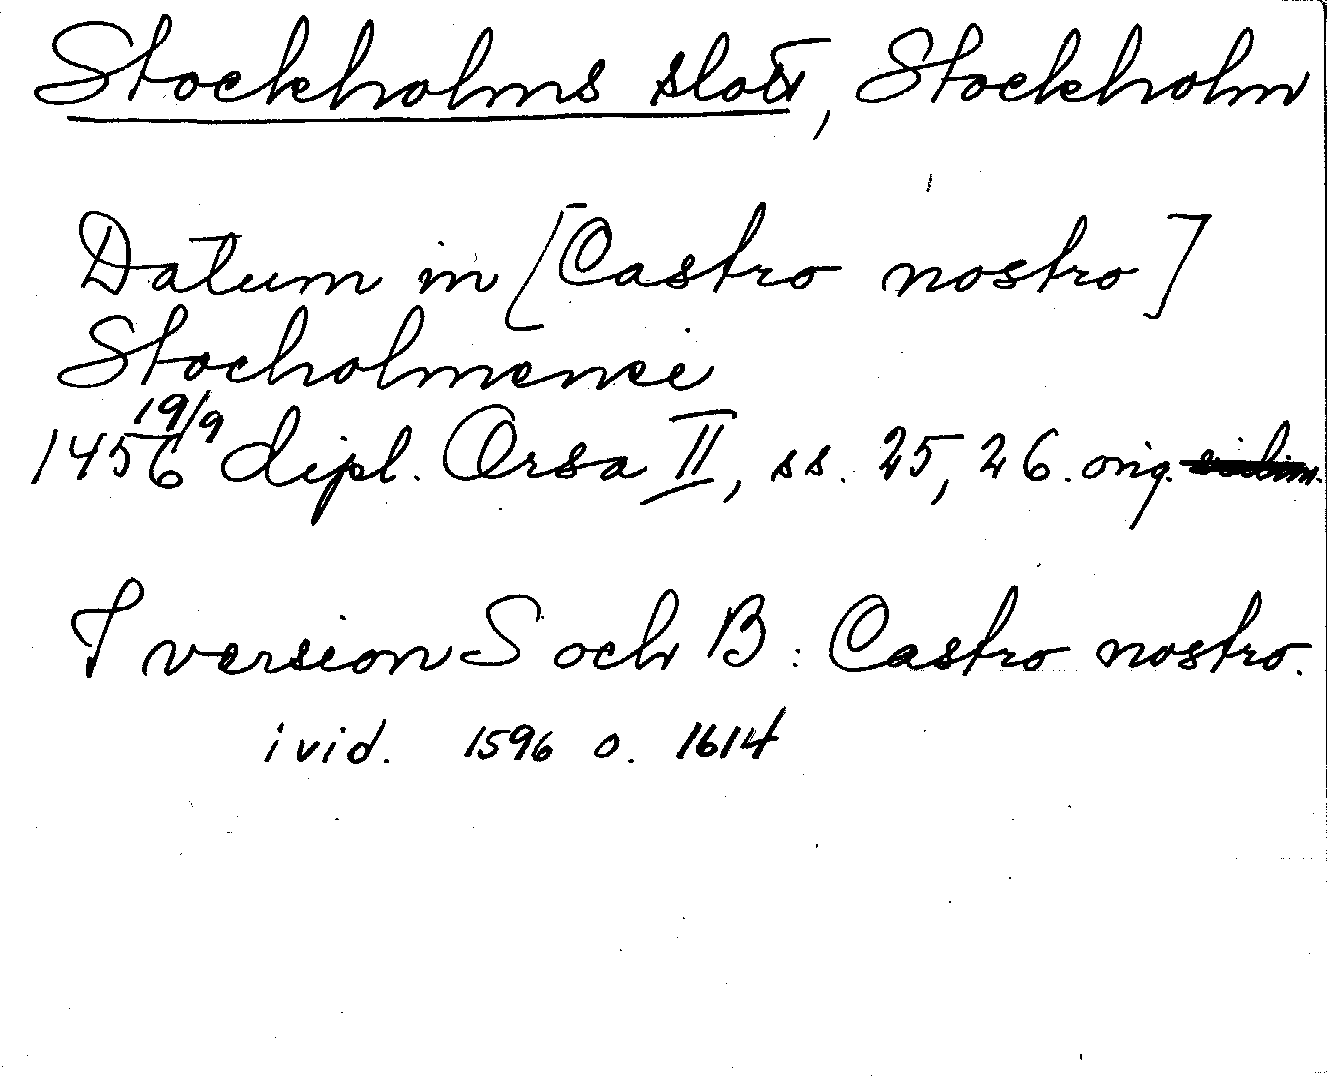 Stockholms slott, Stockholm
Datum in [Castro nostro]
Stocholmence
1456 19/9 dipl. Orsa II, ss. 25, 26. orig. vidim.
I version S och B: Castro nostro.
i vid. 1596 o. 1614